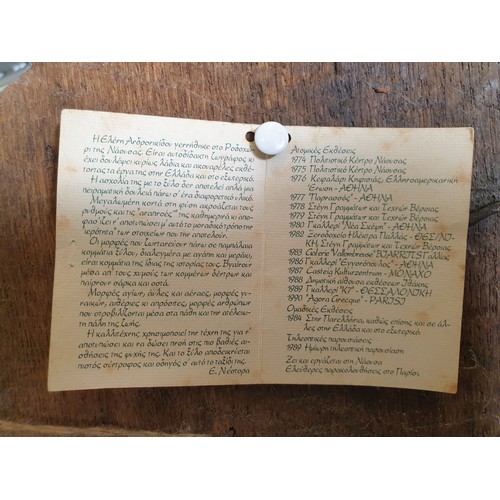 Η Ελένη Ανδρονικίδου γεννήθηκε στο Ροδοχώ-
ρι της Νάουσας. Είναι αυτοδίδακτη ζωγράφος κι
έχει δουλέψει κυρίως λάδια και ακουαρέλες εκθέ-
τοντας τα έργα της στην Ελλάδα και στο εξωτερικό.
Η ασχολία της με το ξύλο δεν αποτελεί απλά μια
πειραματική δουλειά πάνω σ' ένα διαφορετικό υλικό.
Μεγαλωμένη κοντά στη φύση αφουγκράζεται τους
ρυθμούς και τις "αναπνοές" της καθημερινά κι αποφα-
σίζει ν' αποτυπώσει μ' αυτό το μοναδικό τρόπο την
"ιερότητα" των στοιχείων που την αποτελούν.
Οι μορφές που ζωντανεύουν πάνω σε παμπάλαια
κομμάτια ξύλου, διαλεγμένα με αγάπη και μεράκι,
είναι κομμάτια της ίδιας της ιστορίας τους. Βγαίνουν
μέσα απ' τους χυμούς των κομμένων δέντρων και
παίρνουν σάρκα και οστά.
Μορφές αγίων, άυλες και αέρινες, μορφές γυ-
ναικών, αιθέριες κι απρόσιτες, μορφές ανθρώπων
που στροβιλίζονται μέσα στα πάθη και την ατέλειω-
τη πάλη της ζωής.
Η καλλιτέχνης χρησιμοποιεί την τέχνη της για ν'
αποτυπώσει και να δώσει πνοή στις πιο βαθιές αι-
σθήσεις της ψυχής της. Και το ξύλο αποδεικνύεται
πιστός σύντροφος και οδηγός σ' αυτό το ταξίδι της.
Ε. Νέστορα
Ατομικές Εκθέσεις
1974 Πολιτιστικό Κέντρο Νάουσας
1975 Πολιτιστικό Κέντρο Νάουσας
1976 Κεφαλάρι Κηφισιάς, Ελληνοαμερικανική
Ένωση - ΑΘΗΝΑ
1977 "Παρνασσός" - ΑΘΗΝΑ
1978 Στέγη Γραμμάτων και Τεχνών Βέροιας
1979 Στέγη Γραμμάτων και Τεχνών Βέροιας
1980 Γκαλλερί "Νέα Σκέψη" - ΑΘΗΝΑ
1982 Ξενοδοχείο Ηλέκτρα Παλλάς - ΘΕΣ/ΝΙ-
ΚΗ, Στέγη Γραμμάτων και Τεχνών Βέροιας
1983 Galerie Vallombreuse BIARRITS Γαλλίας
1986 Γκαλλερί "Ευγονόπουλος" - ΑΘΗΝΑ
1987 Gasteig Kulturzentrum - ΜΟΝΑΧΟ
1988 Δημοτική αίθουσα εκθέσεων Έδεσσας
1989 Γκαλλερί "Κ7" - ΘΕΣΣΑΛΟΝΙΚΗ
1990 "Agora Grecque" - PARISI
Ομαδικές Εκθέσεις
1984 Στην Πανελλήνια, καθώς επίσης και σε άλ-
λες στην Ελλάδα και στο εξωτερικό.
Τηλεοπτικές παρουσιάσεις
1989 Ημίωρη τηλεοπτική παρουσίαση
Ζει και εργάζεται στη Νάουσα
Ελεύθερες παρακολουθήσεις στο Παρίσι.